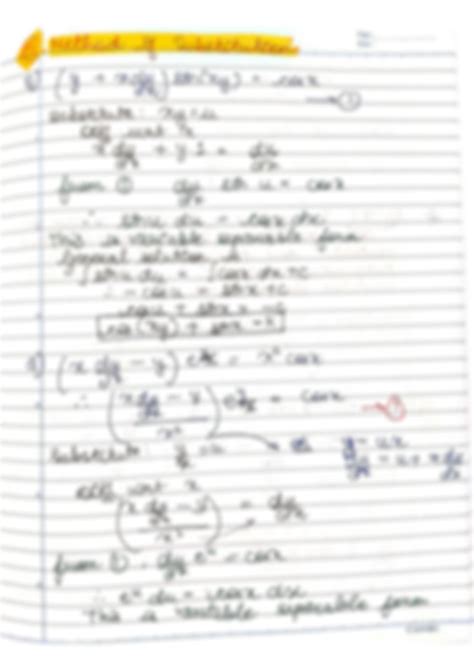 Method of Substitution
(y + x dy/dx) sin(xy) = cos x
→ ①
substitute: xy = u
diff wrt x
x dy/dx + y.1 = du/dx
from ① du/dx sin u = cos x
∴ sin u du = cos x dx
This is variable separable form
General solution is
∫sin u du = ∫cos x dx + c
∴ -cos u = sin x + c
cos u + sin x = -c
cos(xy) + sin x = k
(x dy/dx - y) e^(y/x) = x² cos x
∴ (x dy/dx - y / x²) e^(y/x) = cos x
→ ①
substitute: y/x = u
y = ux
dy/dx = u + x du/dx
diff wrt x
(x dy/dx - y / x²) = du/dx
from ① - du/dx e^u = cos x
∴ e^u du = cos x dx
This is variable separable form